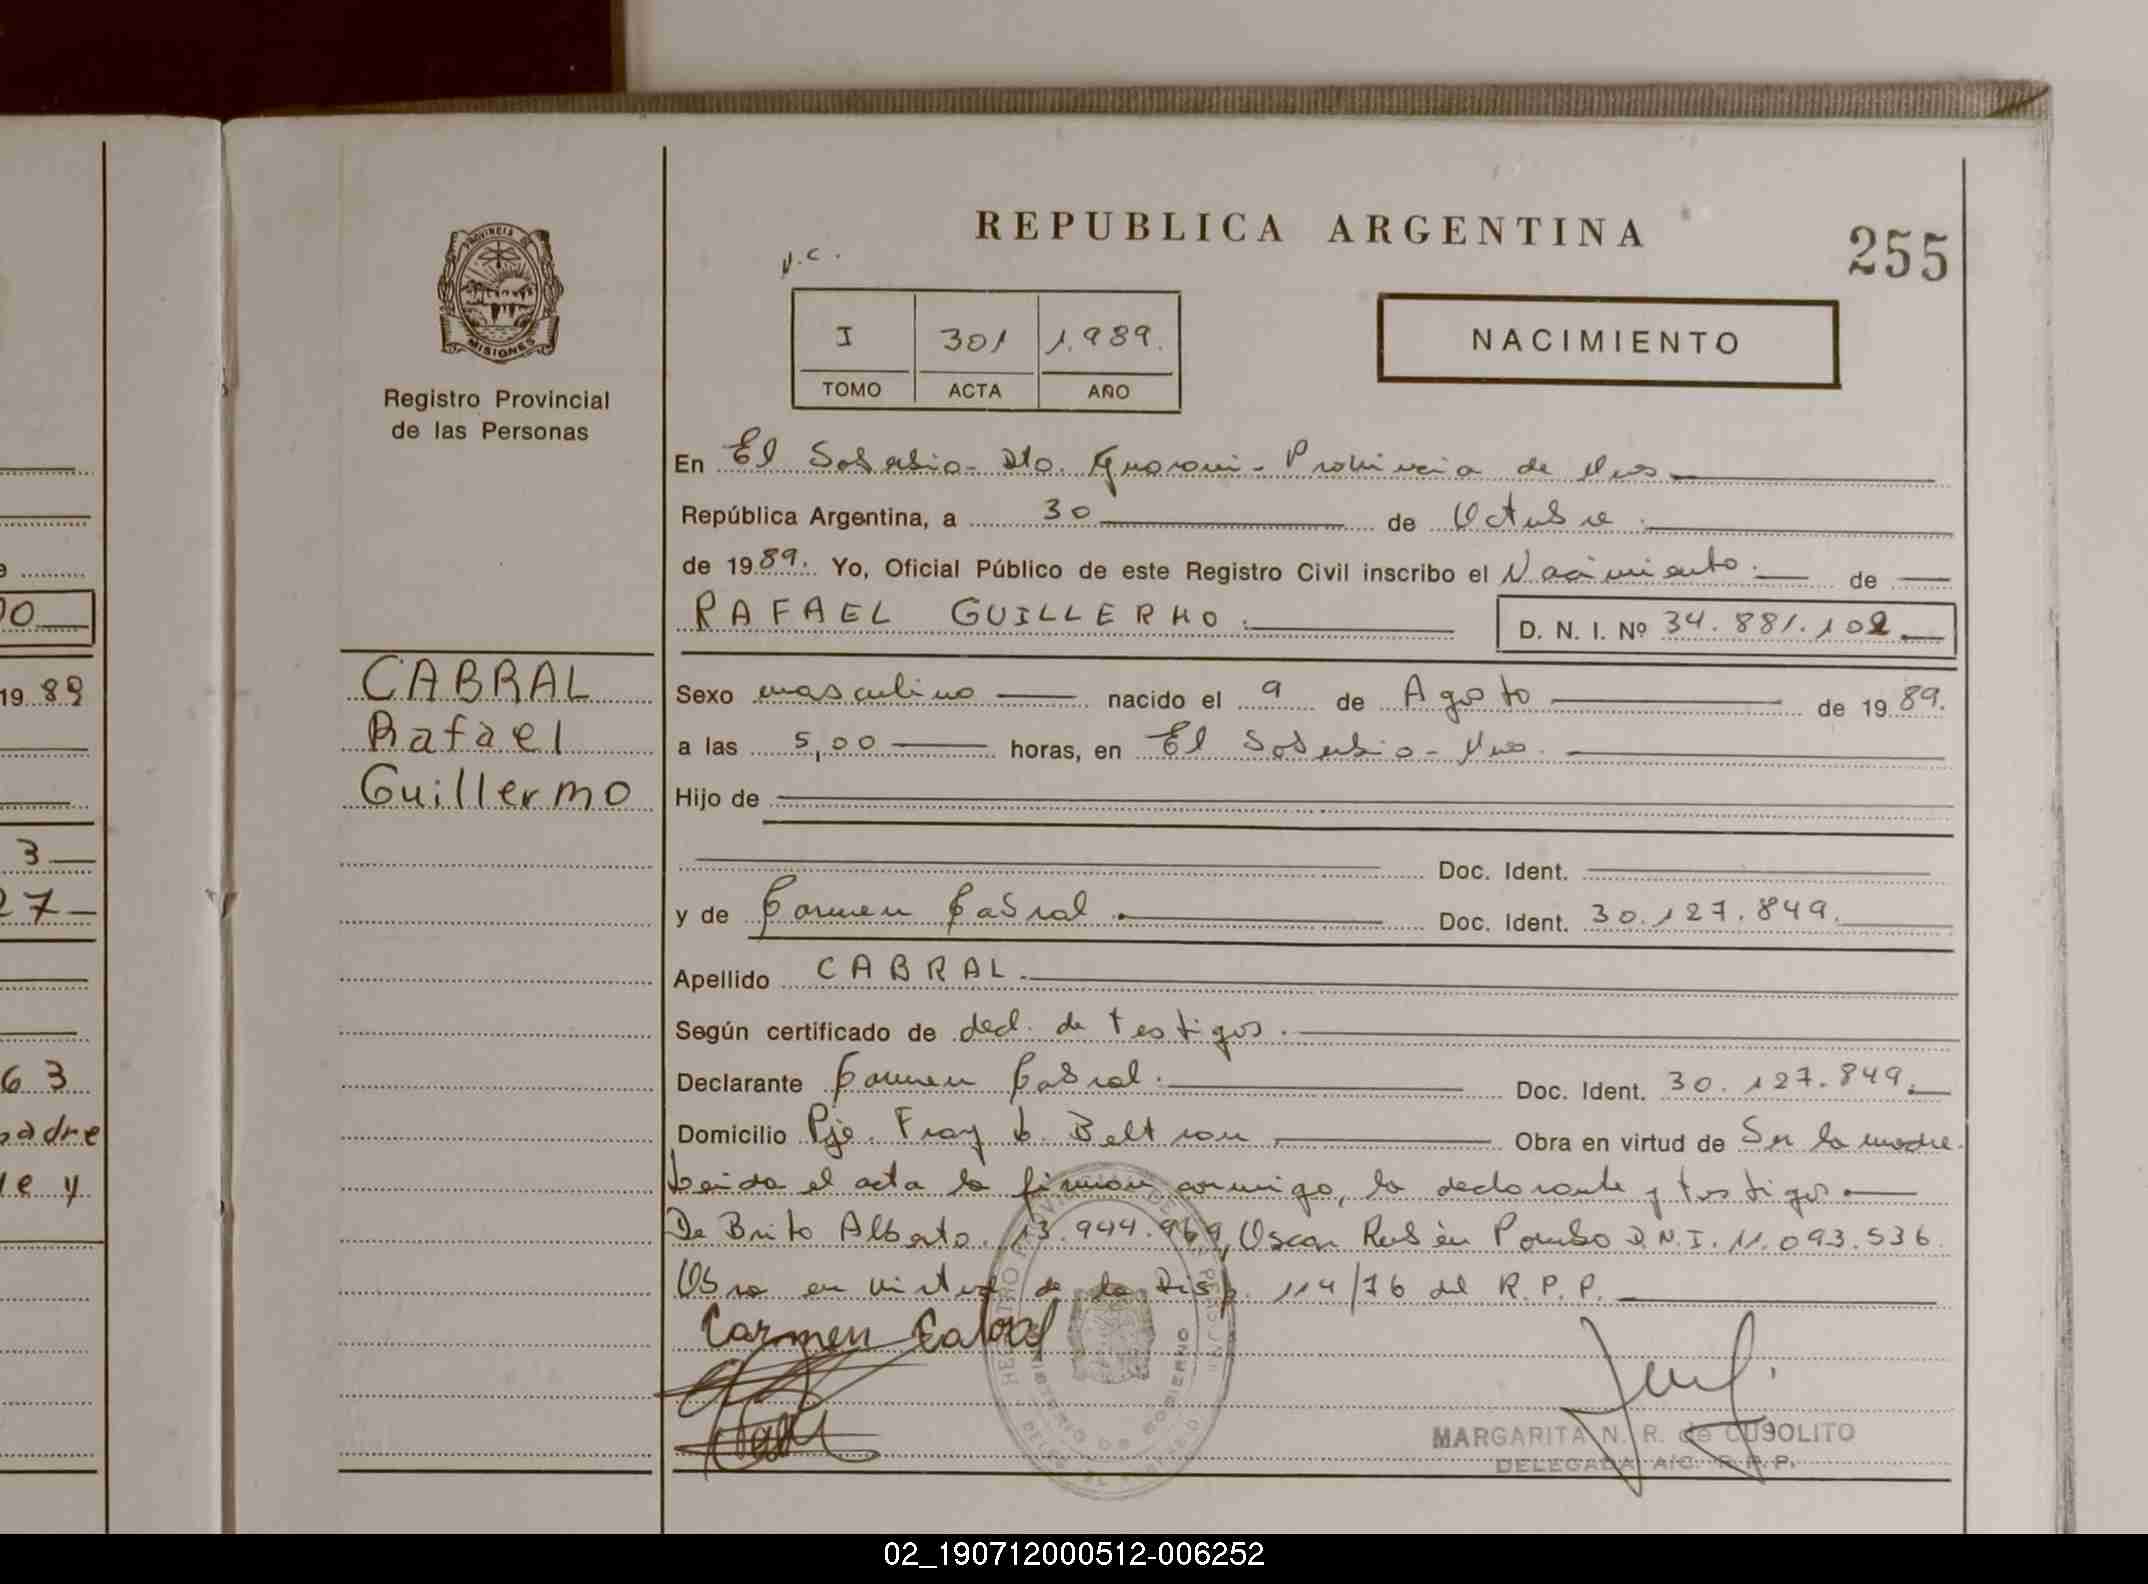 REPUBLICA ARGENTINA
255
PROVINCIA DE
MISIONES
Registro Provincial
de las Personas
I 301 1.989.
TOMO ACTA AÑO
NACIMIENTO
En El Soberbio - Dto. Guarani - Provincia de Mnes
República Argentina, a 30 de Octubre.
de 1989. Yo, Oficial Público de este Registro Civil inscribo el Nacimiento. de
RAFAEL GUILLERMO. D. N. I. Nº 34.881.102.
CABRAL
Rafael
Guillermo
Sexo masculino nacido el 9 de Agosto de 1989.
a las 5,00 horas, en El Soberbio - Mnes.
Hijo de
Doc. Ident.
y de Carmen Cabral. Doc. Ident. 30.127.849.
Apellido CABRAL.
Según certificado de decl. de testigos.
Declarante Carmen Cabral. Doc. Ident. 30.127.849.
Domicilio Pje. Fray L. Beltran Obra en virtud de Ser la madre.
Leida el acta la firman conmigo, la declarante y testigos.
De Brito Alberto. 13.944.969, Oscar Rubén Pombo D.N.I. 11.093.536
Obra en virtud de la Disp. 114/76 del R.P.P.
Carmen Cabral
MARGARITA N. R. de CUSOLITO
DELEGADA A/C. R.P.P.
19 89
3
27
63
padre
y
02_190712000512-006252